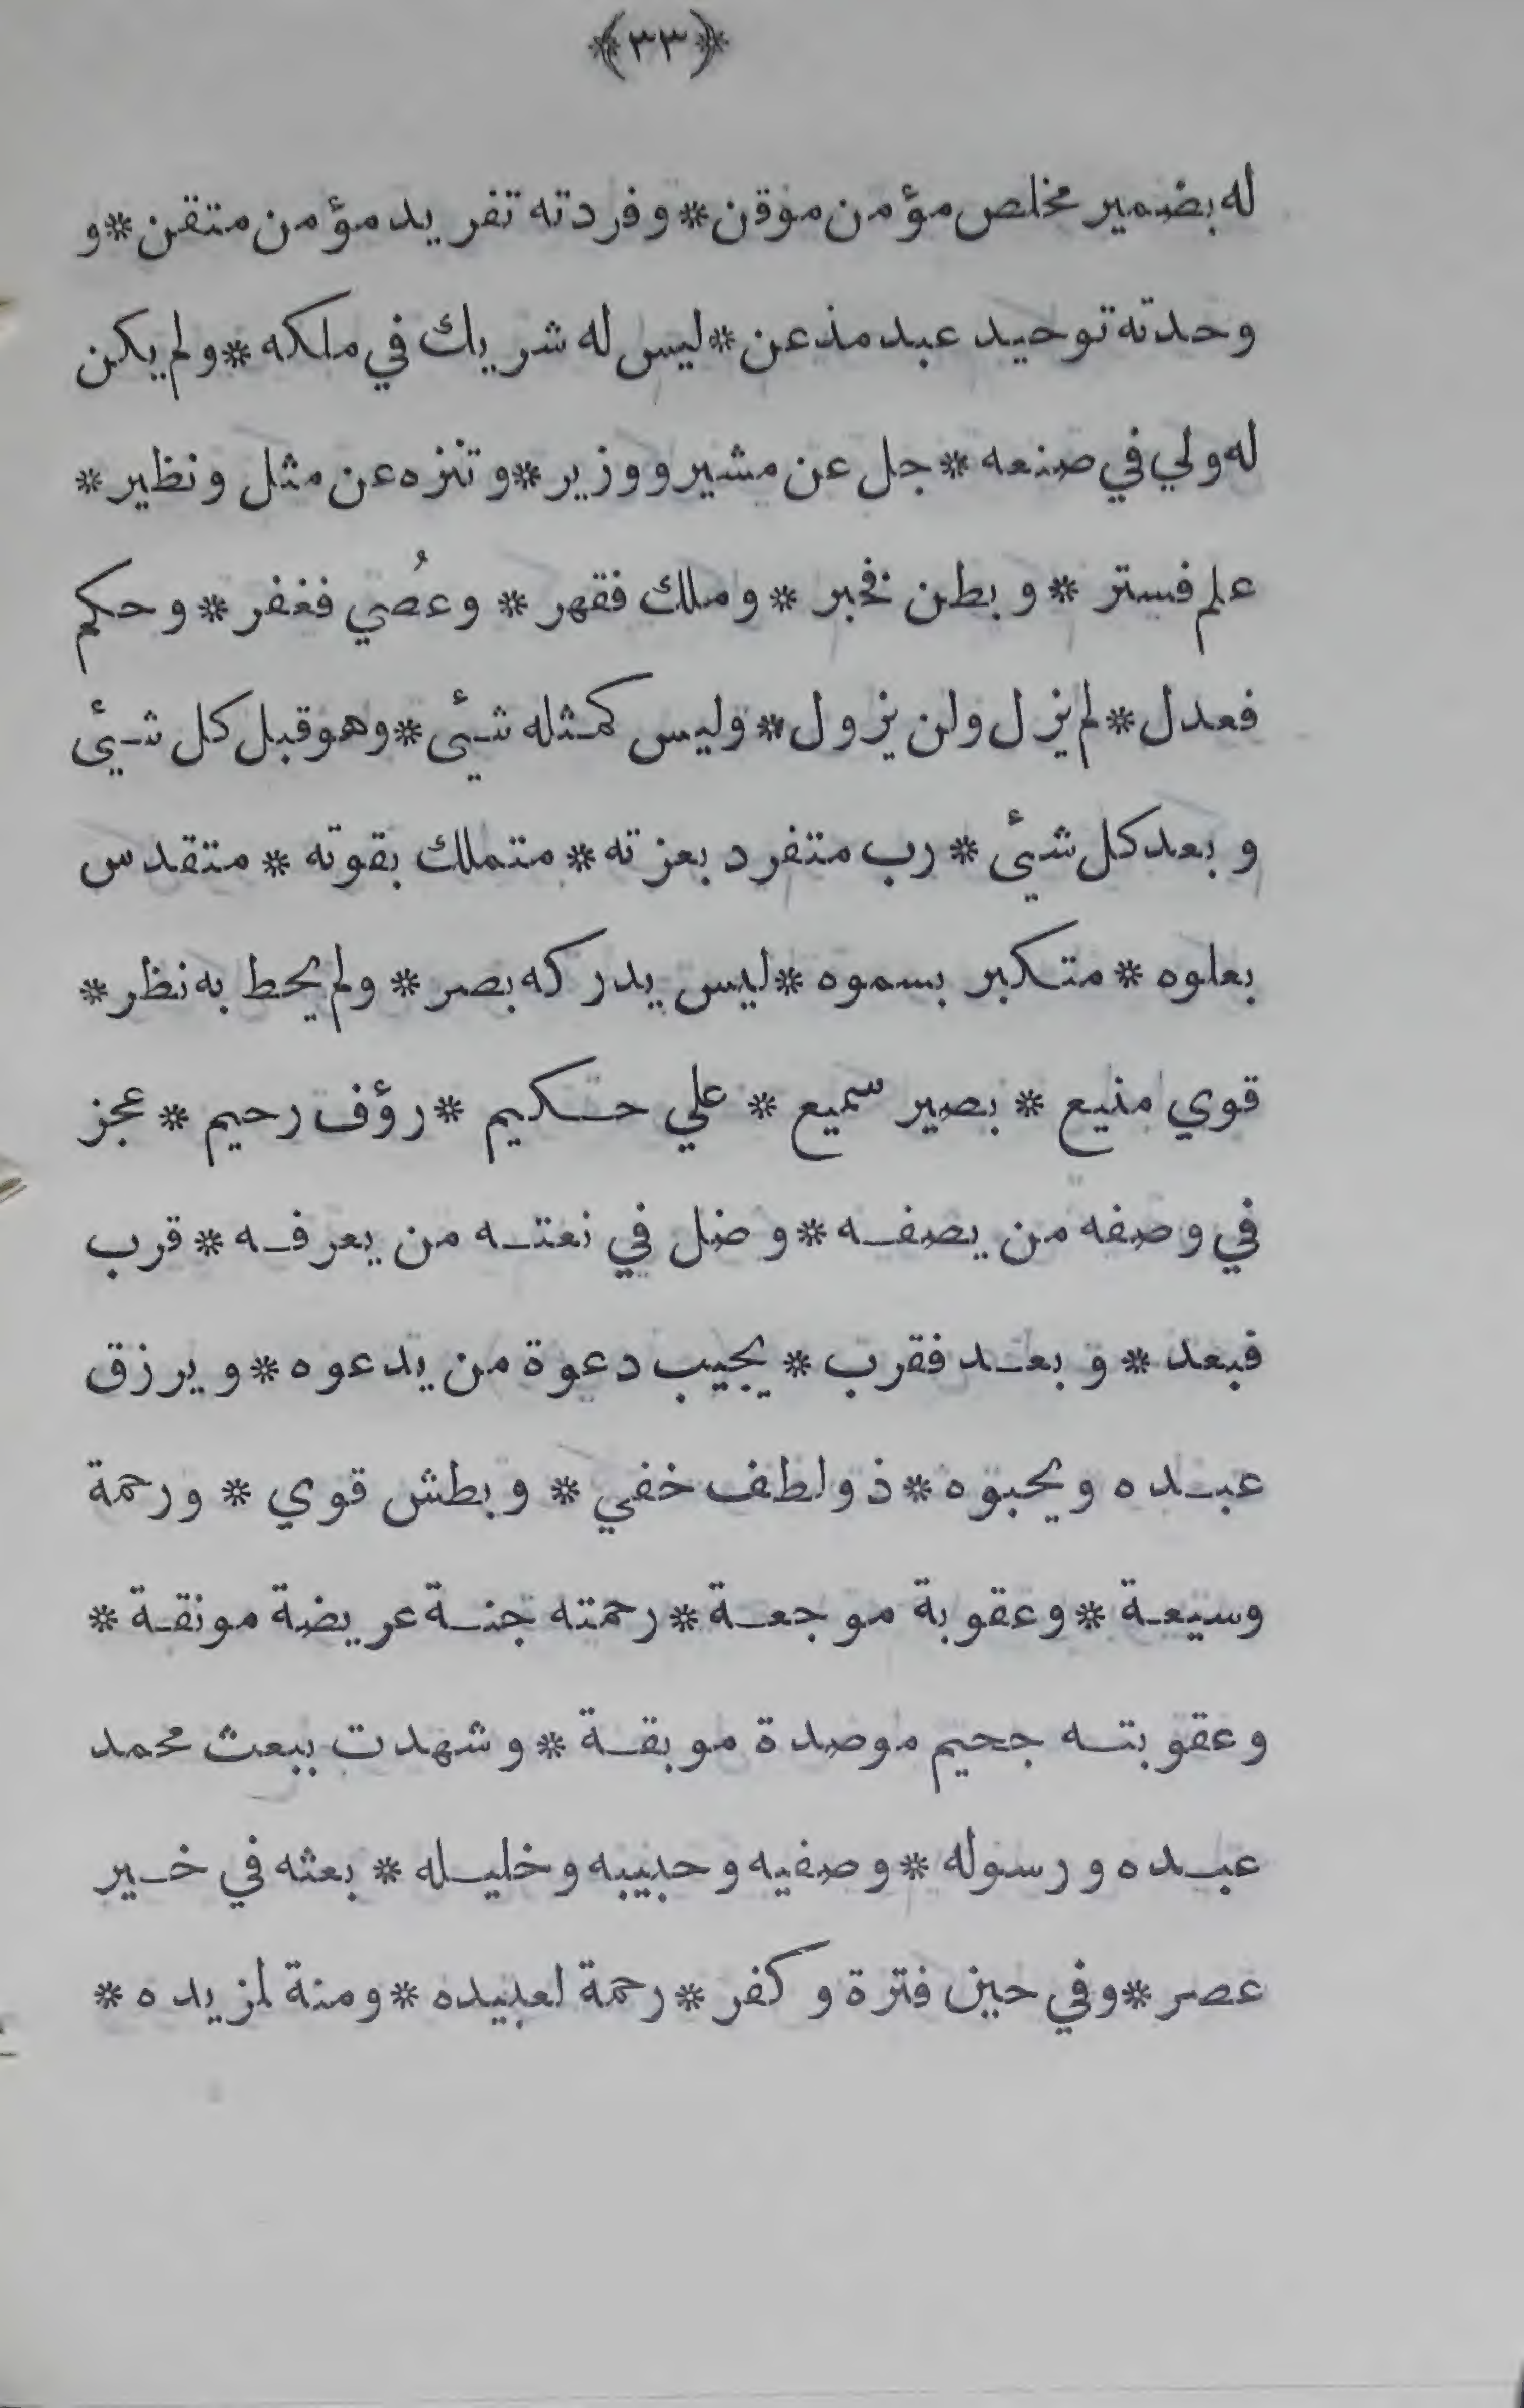 ﴿٣٣﴾
له بضمير مخلص مؤمن موقن * وفردته تفريد مؤمن متقن * و
وحدته توحيد عبد مذعن * ليس له شريك في ملكه * ولم يكن
له ولي في صنعه * جل عن مشير ووزير * وتنزه عن مثل ونظير *
علم فستر * وبطن فخبر * وملك فقهر * وعُصي فغفر * وحكم
فعدل * لم يزل ولن يزول * وليس كمثله شيئ * وهو قبل كل شيئ
وبعد كل شيئ * رب متفرد بعزته * متملك بقوته * متقدس
بعلوه * متكبر بسموه * ليس يدركه بصر * ولم يحط به نظر *
قوي منيع * بصير سميع * علي حكيم * رؤف رحيم * عجز
في وصفه من يصفه * وضل في نعته من يعرفه * قرب
فبعد * وبعد فقرب * يجيب دعوة من يدعوه * ويرزق
عبده ويحبوه * ذو لطف خفي * وبطش قوي * ورحمة
وسيعة * وعقوبة موجعة * رحمته جنة عريضة مونقة *
وعقوبته جحيم موصدة موبقة * وشهدت ببعث محمد
عبده ورسوله * وصفيه وحبيبه وخليله * بعثه في خير
عصر * وفي حين فترة وكفر * رحمة لعبيده * ومنة لمزيده *